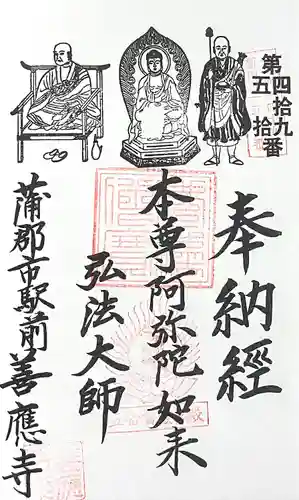 第四拾九番
五拾
奉納經
本尊阿弥陀如来
弘法大師
蒲郡市駅前善應寺